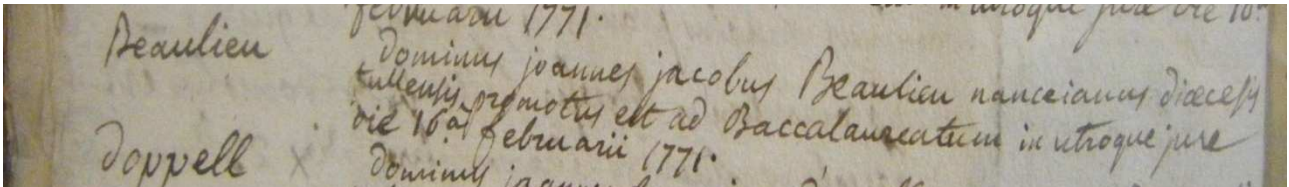 februarii 1771. in utroque jure die 16a
Beaulieu dominus joannes jacobus Beaulieu nanceianus diœcesis
tullensis promotus est ad Baccalaureatum in utroque jure
die 16a februarii 1771.
doppell x dominus joannes